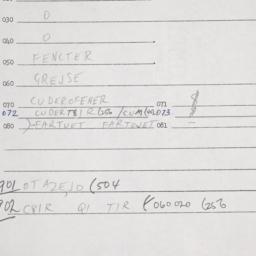 030 O
040 O
050 FENCTER
060 GREJSE
070 CUDEROFENER 071
072 CUDER 073
080 FARTUET FARTOJET 081 -
901 OTAZEJO (504
902 CBIR QI TIR (060020 (256